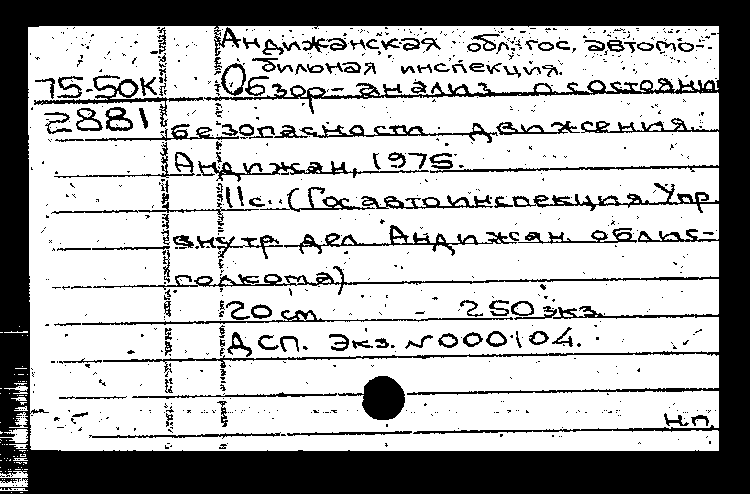 Андижанская обл. гос. автомо-
бильная инспекция.
75-50К Обзор-анализ о состояни
2881 безопасности движения.
Андижан, 1975.
11с. (Госавтоинспекция. Упр.
внутр. дел Андижан. облис-
полкома)
20 см - 250 экз.
ДСП. Экз. №000104.
н.п.